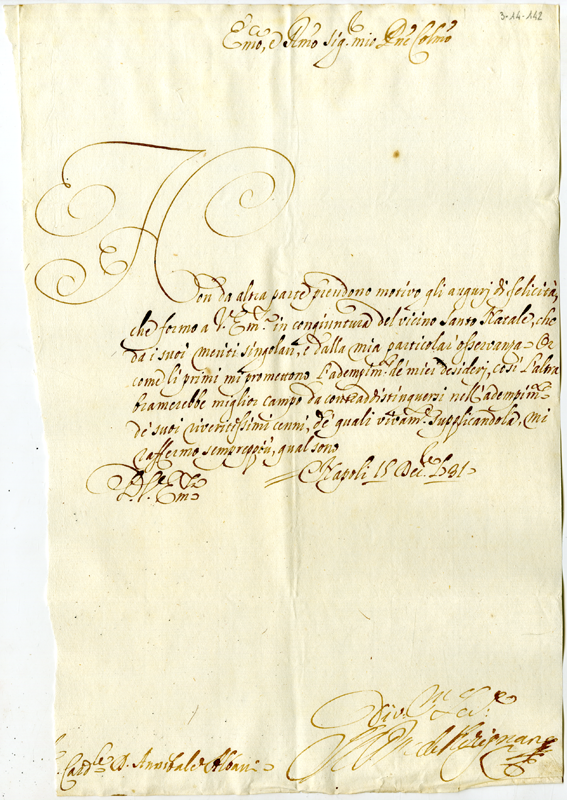 3-14-142
Emo, e Rmo Sig.r mio Pne Colmo
Non da altra parte prendono motivo gli augurj di felicità,
che formo a V. Em.a in congiuntura del vicino Santo Natale, che
da i suoi meriti singolari, e dalla mia particolar osservanza. Et
come li primi mi promettono l'adempim.to de' miei desiderj, così l'altra
bramerebbe miglior campo da contraddistinguersi nell'adempim.to
de' suoi riveritissimi cenni, de' quali vivam.te supplicandola, mi
raffermo sempreppiù, qual sono
Di V. Em.za
Napoli 15 Dec.bre
Card.le D. Annibale Albani